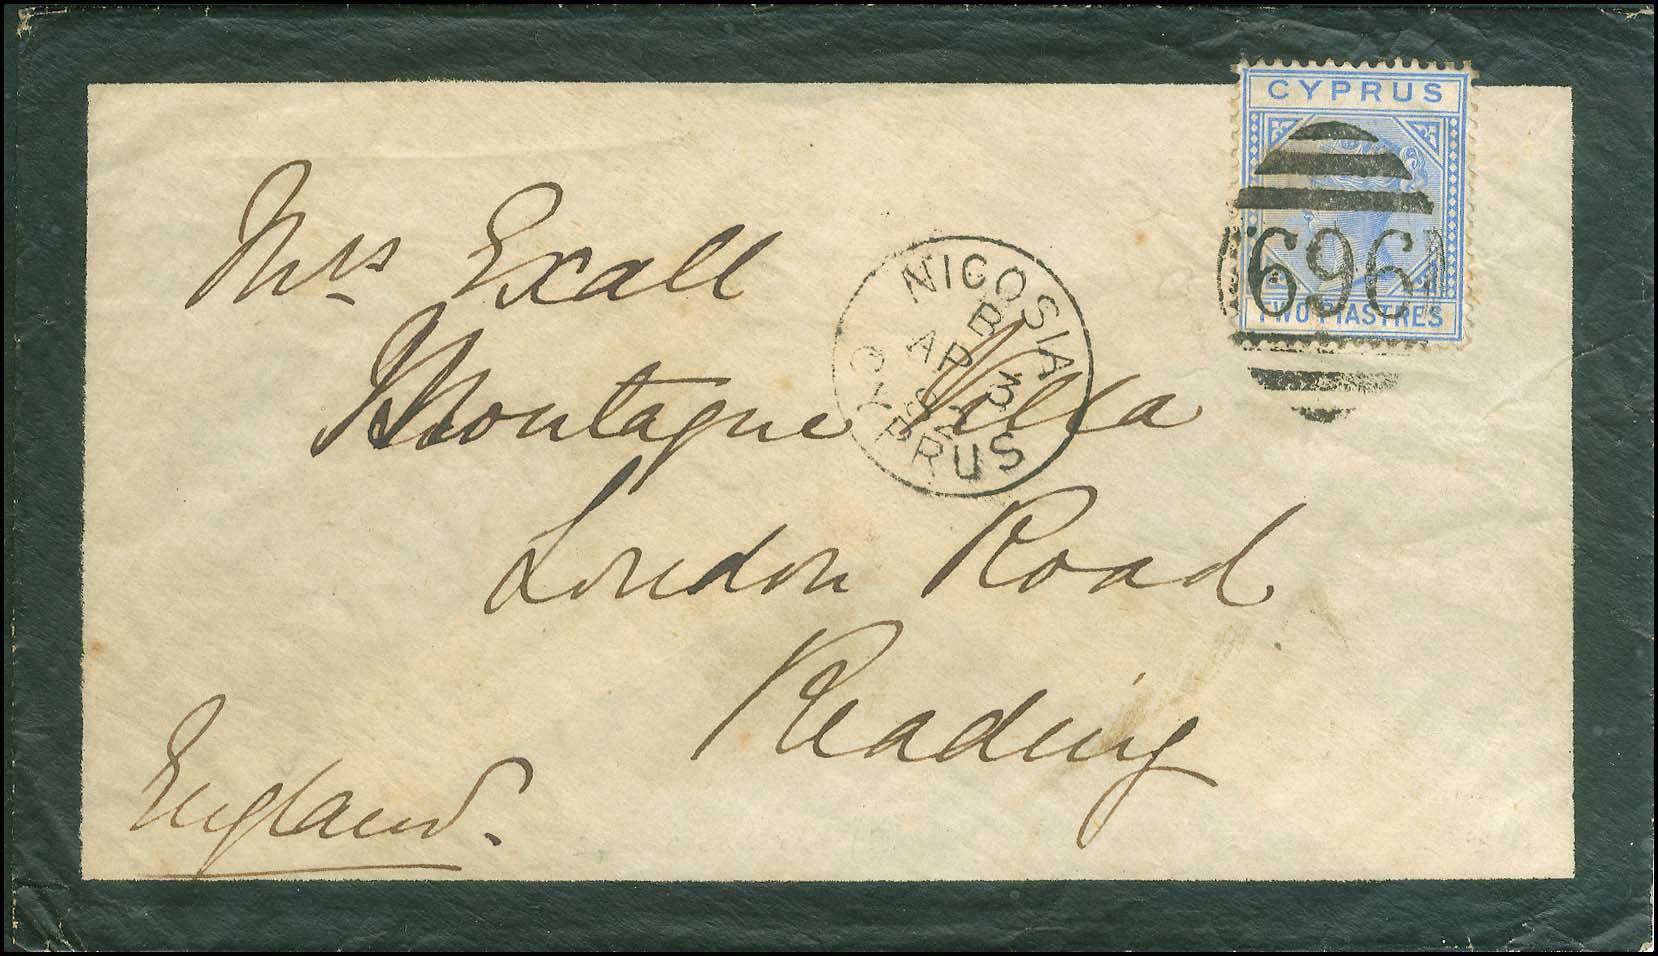 CYPRUS
696
TWO PIASTRES
Mrs Exall
Montague Villa
London Road
Reading
England.
NICOSIA
B
AP 3
82
CYPRUS